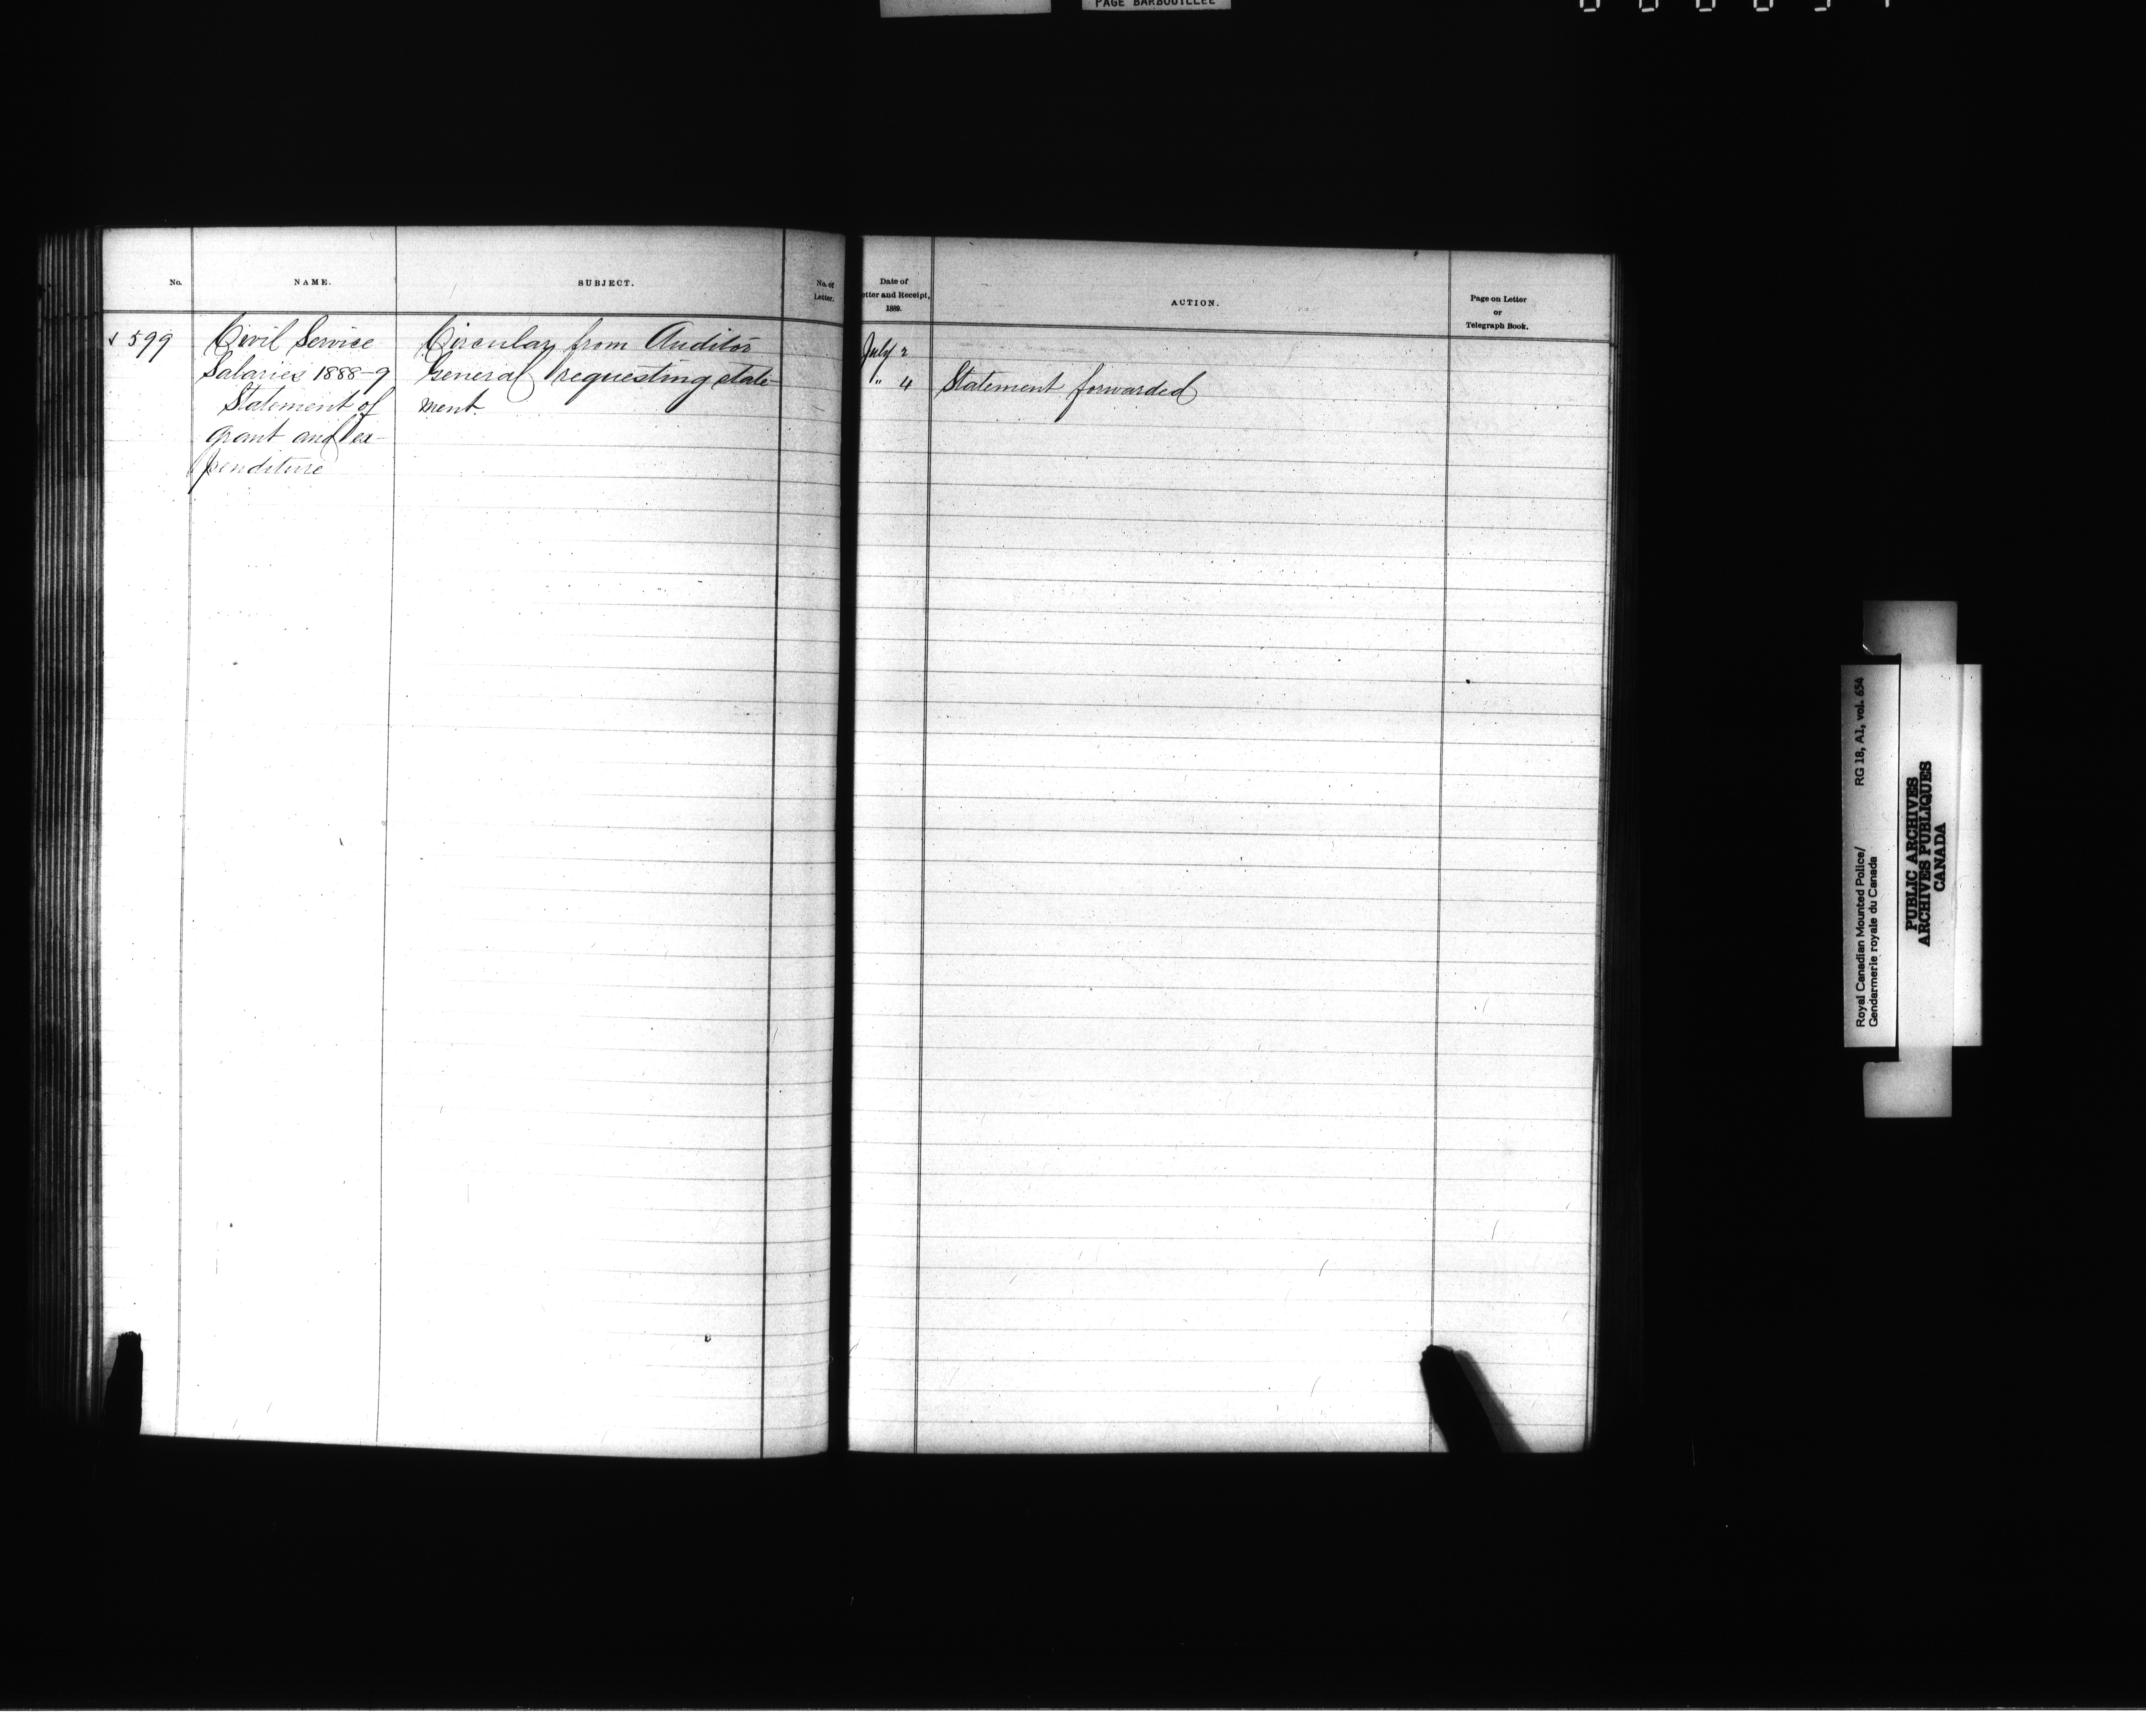 PAGE BARBOUILLEE
No.
NAME.
SUBJECT.
No. of
Letter.
Date of
etter and Receipt,
1889.
ACTION.
Page on Letter
or
Telegraph Book.
√ 599
Civil Service
Salaries 1888-9
Statement of
grant and ex-
penditure
Circular from Auditor
General requesting state-
ment.
July 2
" 4
Statement forwarded
Royal Canadian Mounted Police/ RG 18, A1, vol. 654
Gendarmerie royale du Canada
PUBLIC ARCHIVES
ARCHIVES PUBLIQUES
CANADA